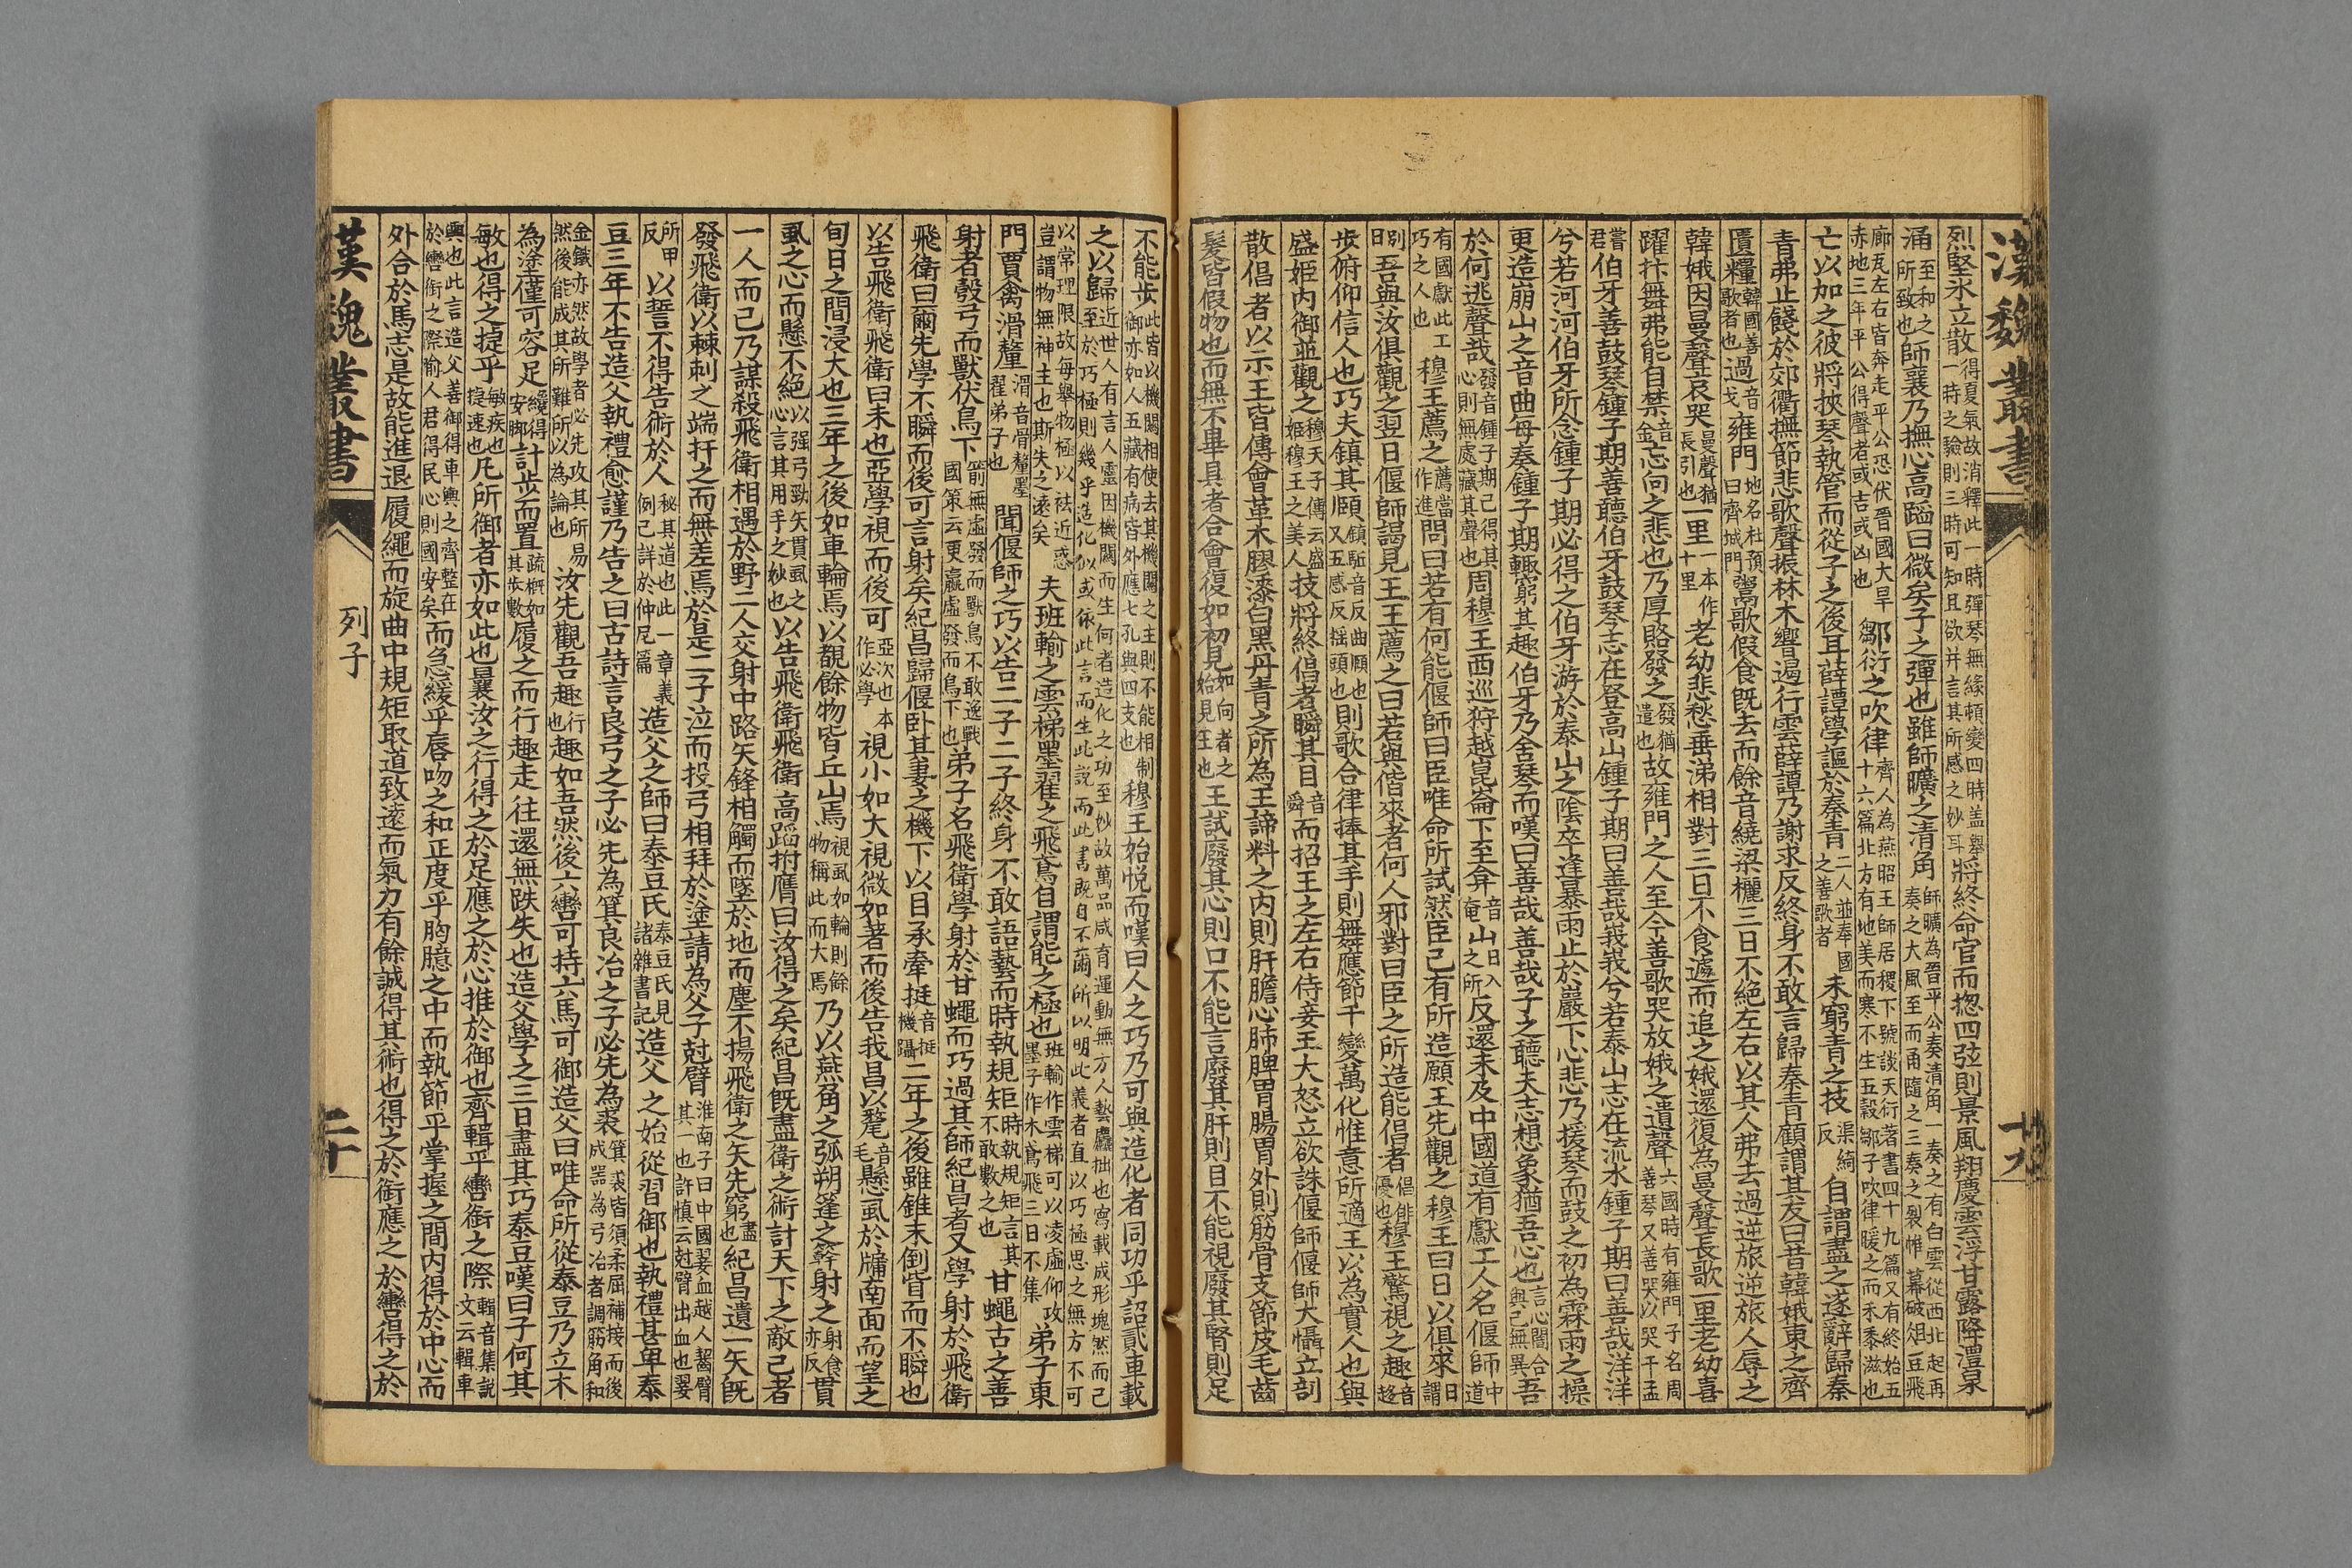 漢魏叢書 十九
烈堅氷立散得夏氣故消釋此一時彈琴無緣頓變四時盖舉一時之驗則三時可知且欲并言其所感之妙耳將終命宫而揔四弦則景風翔慶雲浮甘露降澧泉
涌至和之所致也師襄乃撫心高蹈曰微矣子之彈也雖師曠之清角師曠為晉平公奏清角一奏之有白雲從西北起再奏之大風至而雨隨之三奏之裂帷幕破俎豆飛
廊瓦左右皆奔走平公恐伏晉國大旱赤地三年平公得聲者或吉或凶也鄒衍之吹律齊人為燕昭王師居稷下號談天衍著書四十九篇又有終始五十六篇北方有地美而寒不生五穀鄒子吹律暖之而禾黍滋也
亡以加之彼將挾琴執管而從子之後耳薛譚學謳於秦青二人並秦國之善歌者未窮青之技渠綺反自謂盡之遂辭歸秦
青弗止餞於郊衢撫節悲歌聲振林木響遏行雲薛譚乃謝求反終身不敢言歸秦青顧謂其友曰昔韓娥東之齊
匱糧韓國善歌者也過音戈雍門地名杜預曰齊城門鬻歌假食既去而餘音繞梁欐三日不絶左右以其人弗去過逆旅逆旅人辱之
韓娥因曼聲哀哭曼聲猶長引也一里一本作十里老幼悲愁垂涕相對三日不食遽而追之娥還復為曼聲長歌一里老幼喜
躍抃舞弗能自禁音金忘向之悲也乃厚賂發之發猶遣也故雍門之人至今善歌哭放娥之遺聲六國時有雍門子名周善琴又善哭以哭干孟
嘗君伯牙善鼓琴鍾子期善聽伯牙鼓琴志在登高山鍾子期曰善哉峩峩兮若泰山志在流水鍾子期曰善哉洋洋
兮若河河伯牙所念鍾子期必得之伯牙游於泰山之陰卒逢暴雨止於巖下心悲乃援琴而鼓之初為霖雨之操
更造崩山之音曲每奏鍾子期輙窮其趣伯牙乃舍琴而嘆曰善哉善哉子之聽夫志想象猶吾心也言心闇合與己無異吾
於何逃聲哉發音鍾子期已得其心則無處藏其聲也周穆王西巡狩越崑崙下至弇音奄山日入之所反還未及中國道有獻工人名偃師中道
有國獻此工巧之人也穆王薦之薦當作進問曰若有何能偃師曰臣唯命所試然臣已有所造願王先觀之穆王曰日以俱來日謂
別日吾與汝俱觀之翌日偃師謁見王王薦之曰若與偕來者何人邪對曰臣之所造能倡者倡俳優也穆王驚視之趣音趍
步俯仰信人也巧夫鎮其頤鎮駈音反曲頤也又五感反揺頭也則歌合律捧其手則舞應節千變萬化惟意所適王以為實人也與
盛姬内御並觀之穆天子傳云盛姬穆王之美人技將終倡者瞬其目音舜而招王之左右侍妾王大怒立欲誅偃師偃師大懾立剖
散倡者以示王皆傅會革木膠漆白黑丹青之所為王諦料之内則肝膽心肺脾胃腸胃外則筋骨支節皮毛齒
髮皆假物也而無不畢具者合會復如初見如向者之始見王也王試廢其心則口不能言廢其肝則目不能視廢其腎則足
不能步此皆以機關相使去其機關之主則不能相制御亦如人五藏有病皆外應七孔與四支也穆王始悦而嘆曰人之巧乃可與造化者同功乎詔貳車載
之以歸近世人有言人靈因機關而生何者造化之功至妙故萬品咸育運動無方人藝麤拙也寫載成形塊然而已至於巧極則幾乎造化似或依此言而生此説而此書既自不爾所以明此義者直以巧極思之無方不可
以常理限故每舉物極以袪近惑豈謂物無神主也斯失之遠矣夫班輸之雲梯墨翟之飛鳶自謂能之極也班輸作雲梯可以凌虚仰攻墨子作木鳶飛三日不集弟子東
門賈禽滑釐滑音骨釐墨翟弟子也聞偃師之巧以告二子二子終身不敢語藝而時執規矩時執規矩言其不敢數之也甘蠅古之善
射者彀弓而獸伏鳥下箭無虚發而獸鳥不敢逸戰國策云更羸虚發而鳥下也弟子名飛衛學射於甘蠅而巧過其師紀昌者又學射於飛衛
飛衛曰爾先學不瞬而後可言射矣紀昌歸偃卧其妻之機下以目承牽挺音挺機躡二年之後雖錐末倒眥而不瞬也
以告飛衛飛衛曰未也亞學視而後可亞次也本作必學視小如大視微如著而後告我昌以氂音毛懸虱於牖南面而望之
旬日之間浸大也三年之後如車輪焉以覩餘物皆丘山焉視虱如輪則餘物稱此而大焉乃以燕角之弧朔蓬之簳射之射食亦反貫
虱之心而懸不絶以强弓勁矢貫虱之心言其用手之妙也以告飛衛飛衛高蹈拊膺曰汝得之矣紀昌既盡衛之術計天下之敵己者
一人而已乃謀殺飛衛相遇於野二人交射中路矢鋒相觸而墜於地而塵不揚飛衛之矢先窮盡也紀昌遺一矢既
發飛衛以棘刺之端扞之而無差焉於是二子泣而投弓相拜於塗請為父子尅臂淮南子曰中國㰱血越人齧臂其一也許慎云尅臂出血也㰱
所甲反以誓不得告術於人秘其道也此一章義例已詳於仲尼篇造父之師曰泰豆氏泰豆氏見諸雜書記造父之始從習御也執禮甚卑泰
豆三年不告造父執禮愈謹乃告之曰古詩言良弓之子必先為箕良冶之子必先為裘箕裘皆須柔屈補接而後成器為弓冶者調筋角和
金鐵亦然故學者必先攻其所易然後能成其所難所以為諭也汝先觀吾趣行也趣如吾然後六轡可持六馬可御造父曰唯命所從泰豆乃立木
為塗僅可容足纔得安脚計步而置疏概如其步數履之而行趣走往還無跌失也造父學之三日盡其巧泰豆嘆曰子何其
敏也得之㨗乎敏疾也㨗速也凡所御者亦如此也曩汝之行得之於足應之於心推於御也齊輯乎轡銜之際輯音集説文云輯車
輿也此言造父善御得車輿之齊整在於轡銜之際喻人君得民心則國安矣而急緩乎唇吻之和正度乎胸臆之中而執節乎掌握之間内得於中心而
外合於馬志是故能進退履繩而旋曲中規矩取道致遠而氣力有餘誠得其術也得之於銜應之於轡得之於
漢魏叢書 列子 二十